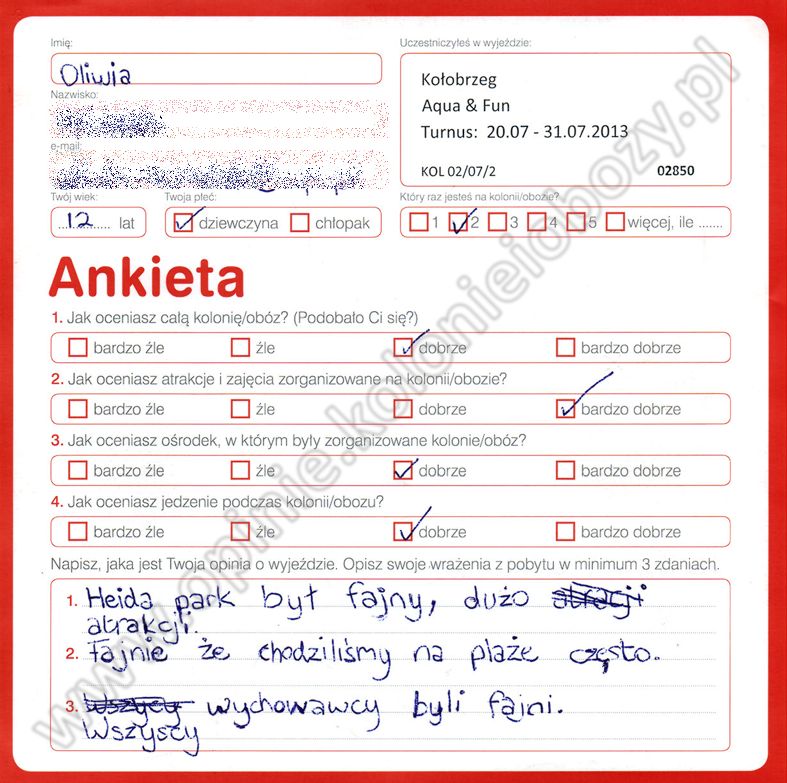 Imię:
Oliwia
Nazwisko:
e-mail:
Twój wiek:
12 lat
Twoja płeć:
dziewczyna chłopak
Uczestniczyłeś w wyjeździe:
Kołobrzeg
Aqua & Fun
Turnus: 20.07 - 31.07.2013
KOL 02/07/2 02850
Który raz jesteś na kolonii/obozie?
1 2 3 4 5 więcej, ile .......
Ankieta
1. Jak oceniasz całą kolonię/obóz? (Podobało Ci się?)
bardzo źle źle dobrze bardzo dobrze
2. Jak oceniasz atrakcje i zajęcia zorganizowane na kolonii/obozie?
bardzo źle źle dobrze bardzo dobrze
3. Jak oceniasz ośrodek, w którym były zorganizowane kolonie/obóz?
bardzo źle źle dobrze bardzo dobrze
4. Jak oceniasz jedzenie podczas kolonii/obozu?
bardzo źle źle dobrze bardzo dobrze
Napisz, jaka jest Twoja opinia o wyjeździe. Opisz swoje wrażenia z pobytu w minimum 3 zdaniach.
1. Heida park był fajny, dużo
atrakcji.
2. Fajnie że chodziliśmy na plaże często.
3. wychowawcy byli fajni.
Wszyscy
www.opinie.kolonieiobozy.pl